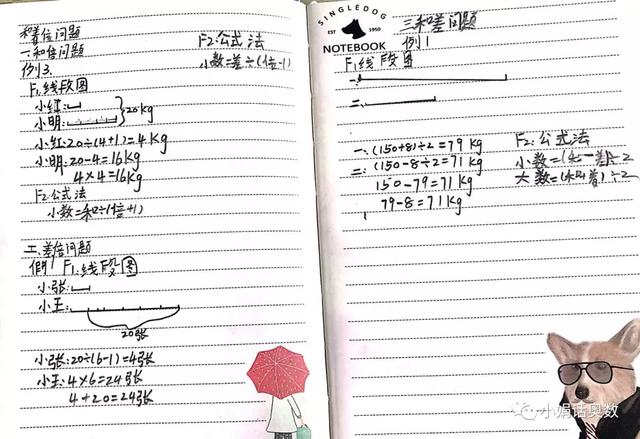 和差倍问题
一.和倍问题
例3.
F1.线段图
小红:
小明:
20kg
小红:20÷(4+1)=4kg
小明:20-4=16kg
4×4=16kg
F2.公式法
小数=和÷(倍+1)
二.差倍问题
例1 F1:线段图
小张:
小王:
20张
小张:20÷(6-1)=4张
小王:4×6=24张
4+20=24张
F2:公式法
小数=差÷(倍-1)
SINGLEDOG
EST 1950
NOTEBOOK
三.和差问题
例1
F1线段图
一:
二:
一:(150+8)÷2=79kg
二:(150-8÷2=71kg
150-79=71kg
79-8=71kg
F2:公式法
小数=(和-差)÷2
大数=(和+差)÷2
小娟话奥数